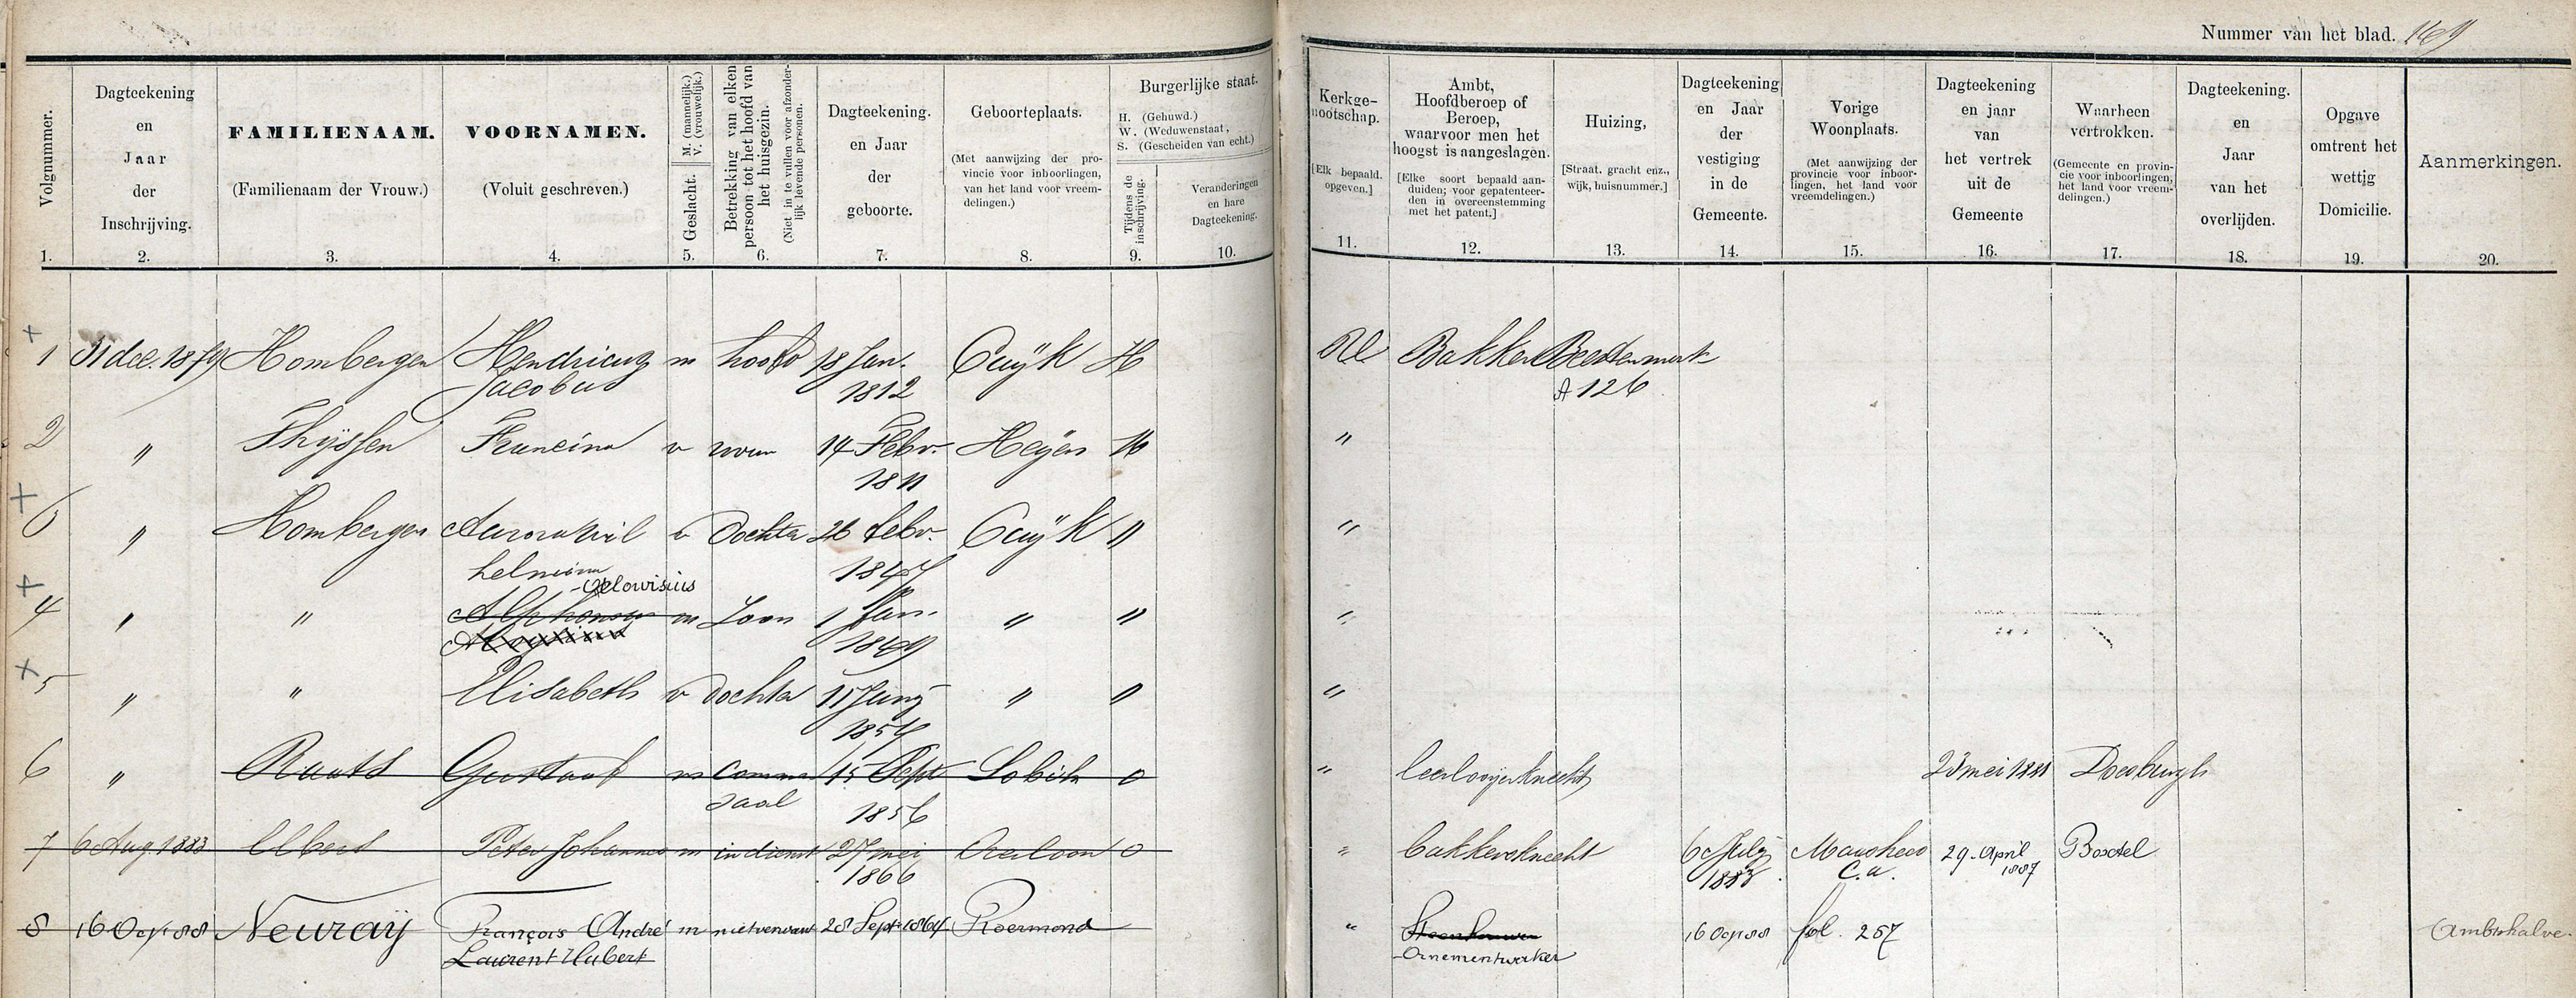 Nummer van het blad. 169
Volgnummer.
1.
Dagteekening
en
Jaar
der
Inschrijving.
2.
FAMILIENAAM.
(Familienaam der Vrouw.)
3.
VOORNAMEN.
(Voluit geschreven.)
4.
Geslacht.
M. (mannelijk.)
V. (vrouwelijk.)
5.
Betrekking van elken
persoon tot het hoofd van
het huisgezin.
(Niet in te vullen voor afzonder-
lijk levende personen.
6.
Dagteekening.
en Jaar
der
geboorte.
7.
Geboorteplaats.
(Met aanwijzing der pro-
vincie voor inboorlingen,
van het land voor vreem-
delingen.)
8.
Burgerlijke staat.
H. (Gehuwd.)
W. (Weduwenstaat,
S. (Gescheiden van echt.)
Tijdens de
inschrijving.
9.
Veranderingen
en hare
Dagteekening.
10.
Kerkge-
nootschap.
[Elk bepaald.
opgeven.]
11.
Ambt,
Hoofdberoep of
Beroep,
waarvoor men het
hoogst is aangeslagen.
[Elke soort bepaald aan-
duiden; voor gepatenteer-
den in overeenstemming
met het patent.]
12.
Huizing,
[Straat, gracht enz.,
wijk, huisnummer.]
13.
Dagteekening
en Jaar
der
vestiging
in de
Gemeente.
14.
Vorige
Woonplaats.
(Met aanwijzing der
provincie voor inboor-
lingen, het land voor
vreemdelingen.)
15.
Dagteekening
en jaar
van
het vertrek
uit de
Gemeente
16.
Waarheen
vertrokken.
(Gemeente en provin-
cie voor inboorlingen,
het land voor vreem-
delingen.)
17.
Dagteekening.
en
Jaar
van het
overlijden.
18.
Opgave
omtrent het
wettig
Domicilie.
19.
Aanmerkingen.
20.
1 31 dec. 1879 Hombergen Hendricus m hoofd 18 Jan. Cuÿk H Bakker Beestenmark
Jacobus 1812 A 126
2 " Thÿssen Francina v vrouw 14 Febr. Heÿen "
1811
" Hombergen Aurora Wil v dochter 26 febr. Cuÿk " "
helmina 1847
Alowisius
4 " " Alphonsus m Zoon 1 Jan. " " "
1849
5 " " Elisabeth v dochter 11 Junÿ " " "
1854
6 " Raats Gustaaf m comm 15 Sept Lobith 0 " leerlooyersknecht 23 mei 1881 Doesburgh
saal 1856
7 6 Aug. 1883 Elbers Peter Johannes m in dienst 27 mei Overloon 0 " bakkersknecht 6 Julÿ Maashees 29 April Boxtel
1866 1883 c.a. 1887
8 16 Oct 88 Neuraÿ François André m niet verwant 28 Sept 1864 Roermond " Steenhouwer 16 Oct 88 fol. 257 Ambtshalve.
Laurent Hubert Ornementwerker